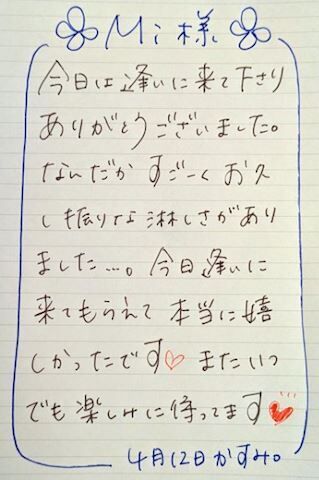 Mi様
今日は逢いに来て下さり
ありがとうございました。
なんだかすごーくお久
し振りな淋しさがあり
ました…。今日逢いに
来てもらえて本当に嬉
しかったです♡またいつ
でも楽しみに待ってます♥
4月12日かすみ。